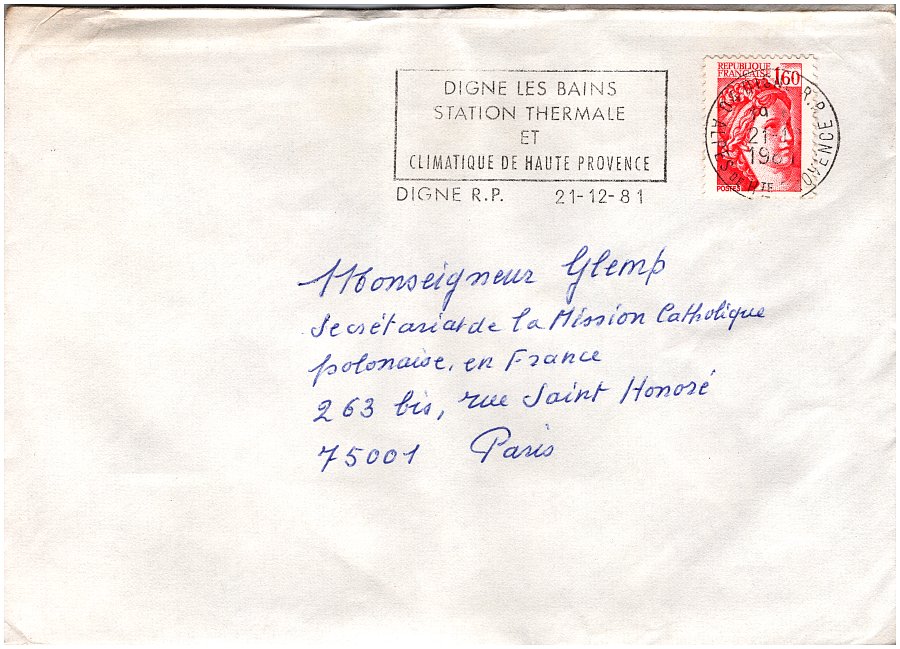 DIGNE LES BAINS
STATION THERMALE
ET
CLIMATIQUE DE HAUTE PROVENCE
DIGNE R.P. 21-12-81
REPUBLIQUE
FRANÇAISE 1,60
POSTES
R.P.
19
21-
ALPES DE HTE PROVENCE
Monseigneur Glemp
Secrétariat de la Mission Catholique
polonaise, en France
263 bis, rue Saint Honoré
75001 Paris